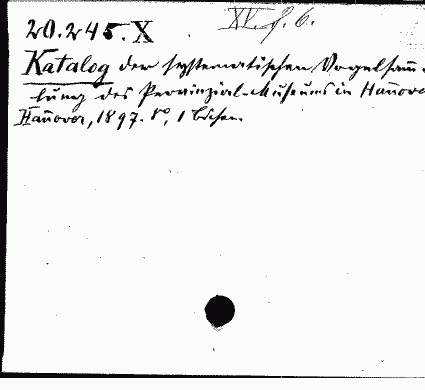 20.245.X XV. f. 6.
Katalog der systematischen Vogelsam̄-
lung des Provinzial-Museums in Han̄over
Han̄over, 1897. 8°, 1